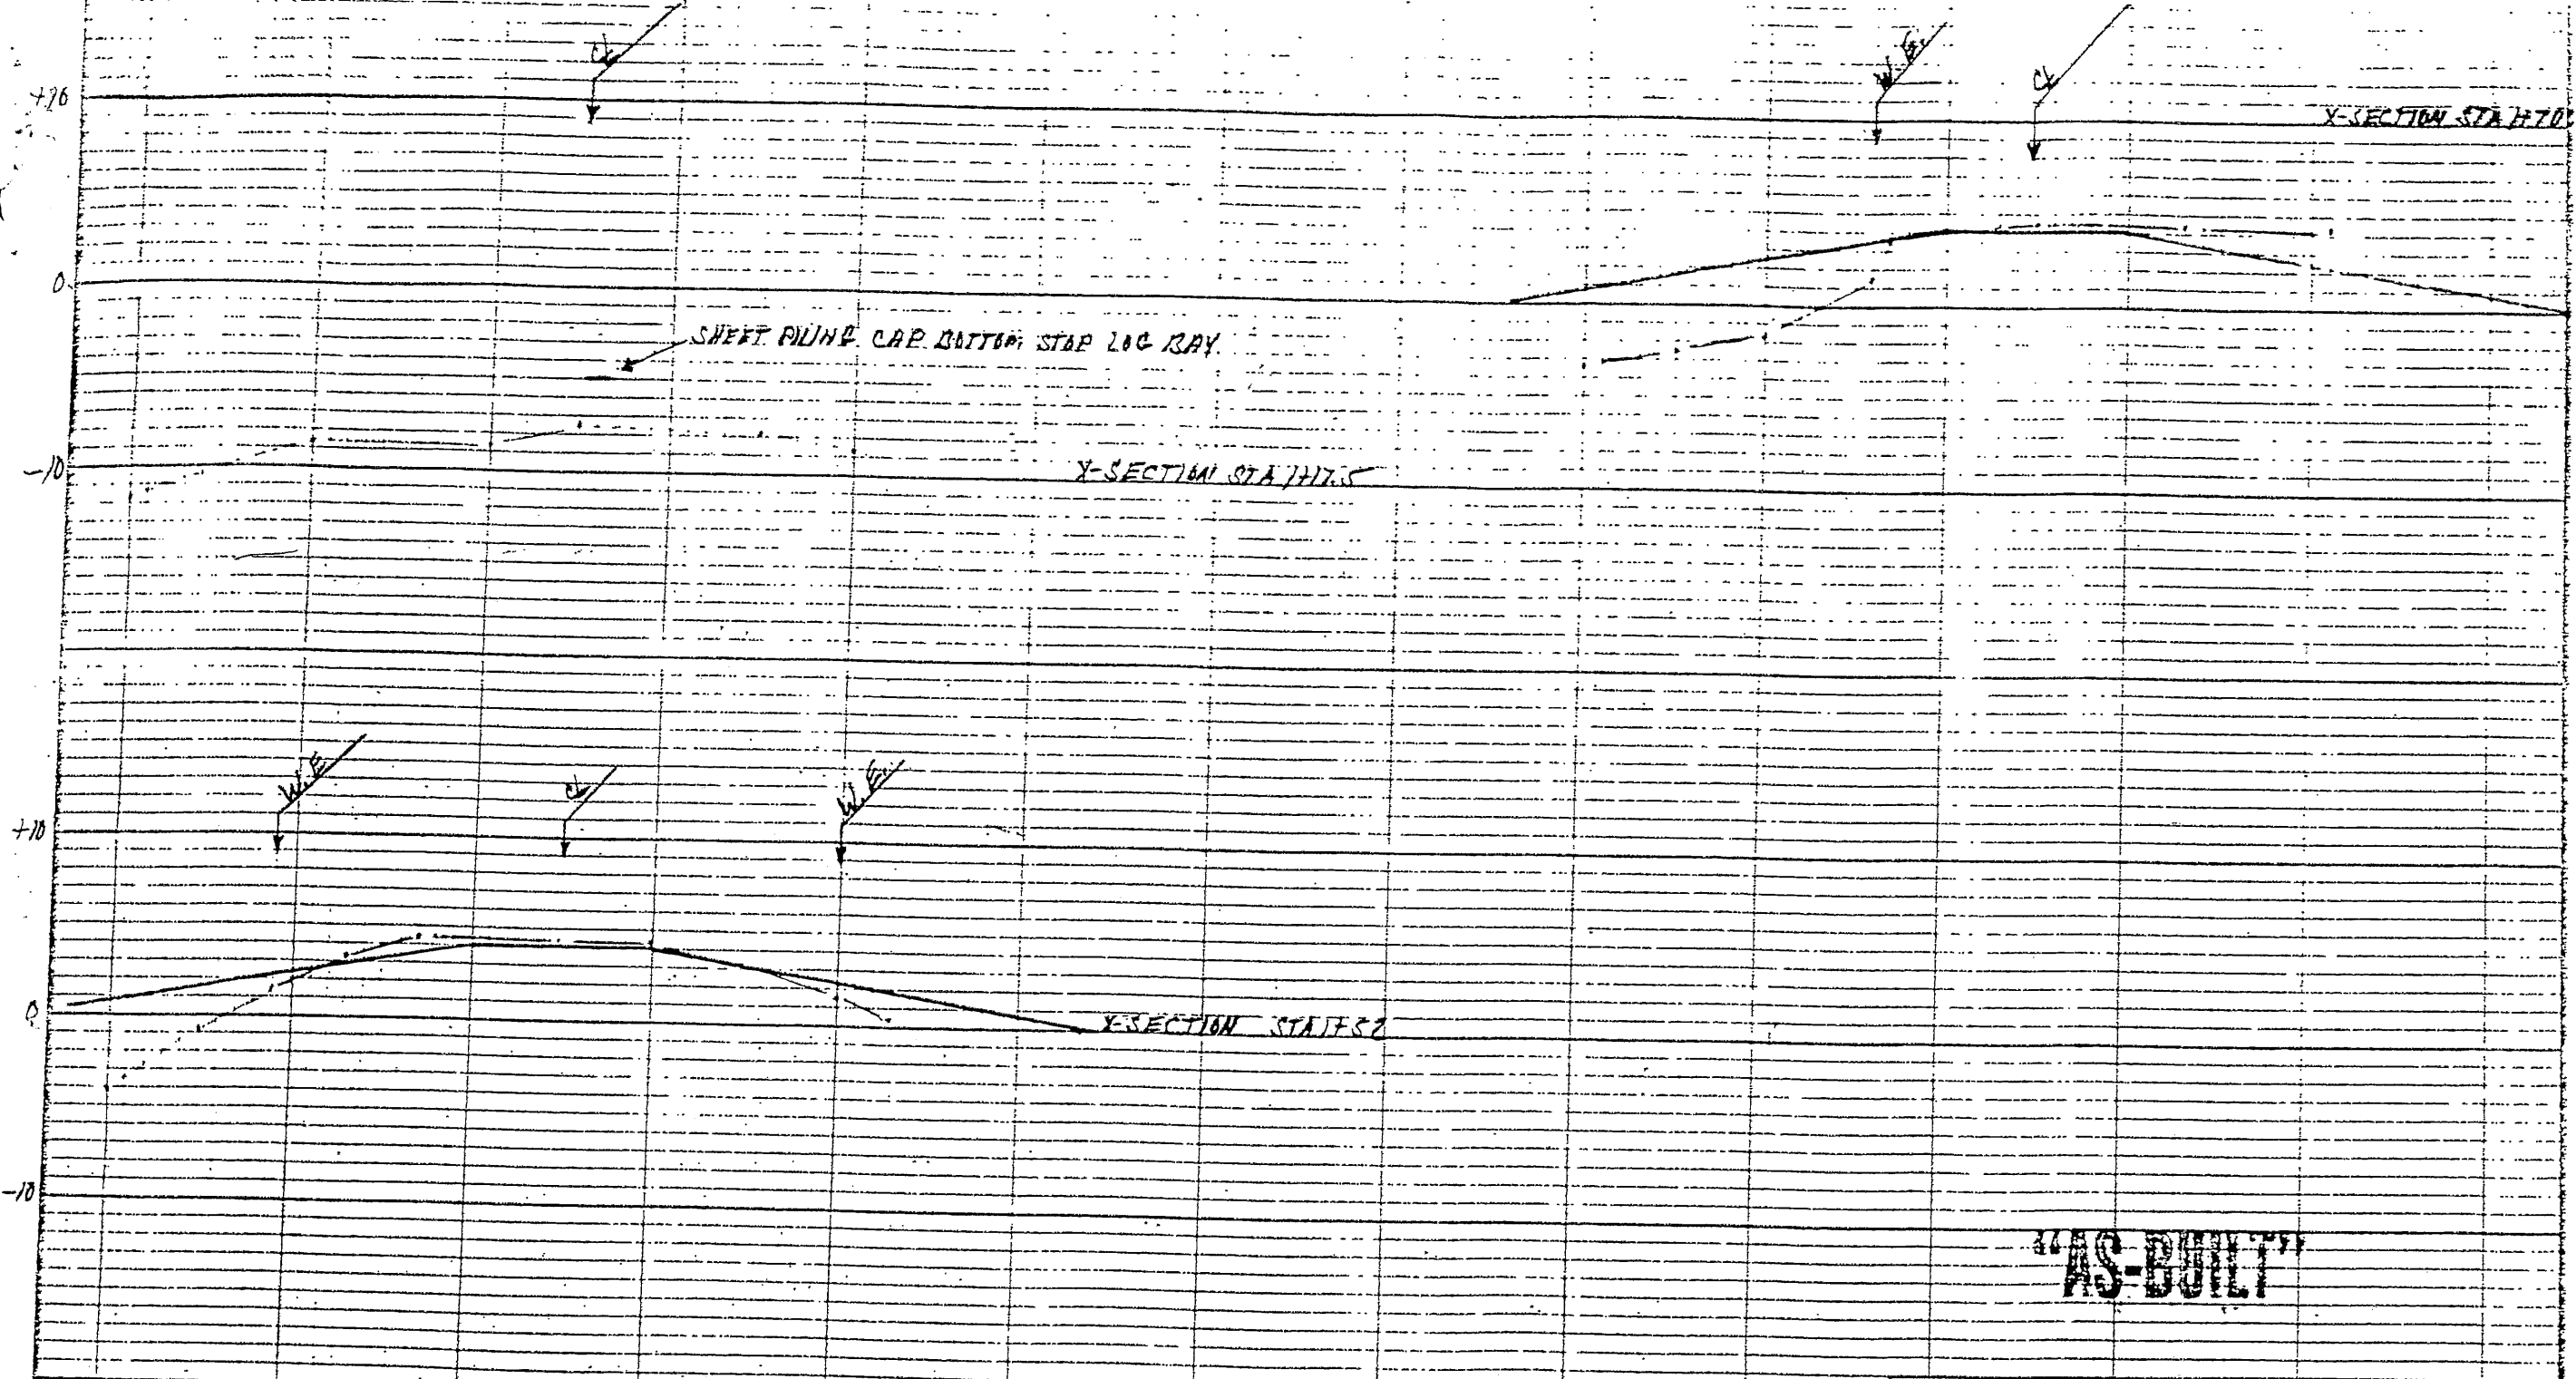 CL
W.E.
CL
+20
X-SECTION STA 1+70
0
SHEET PILING CAP BOTTOM STOP LOG BAY
-10
X-SECTION STA 1+17.5
W.E.
CL
W.E.
+10
0
X-SECTION STA 1+52
-10
"AS-BUILT"